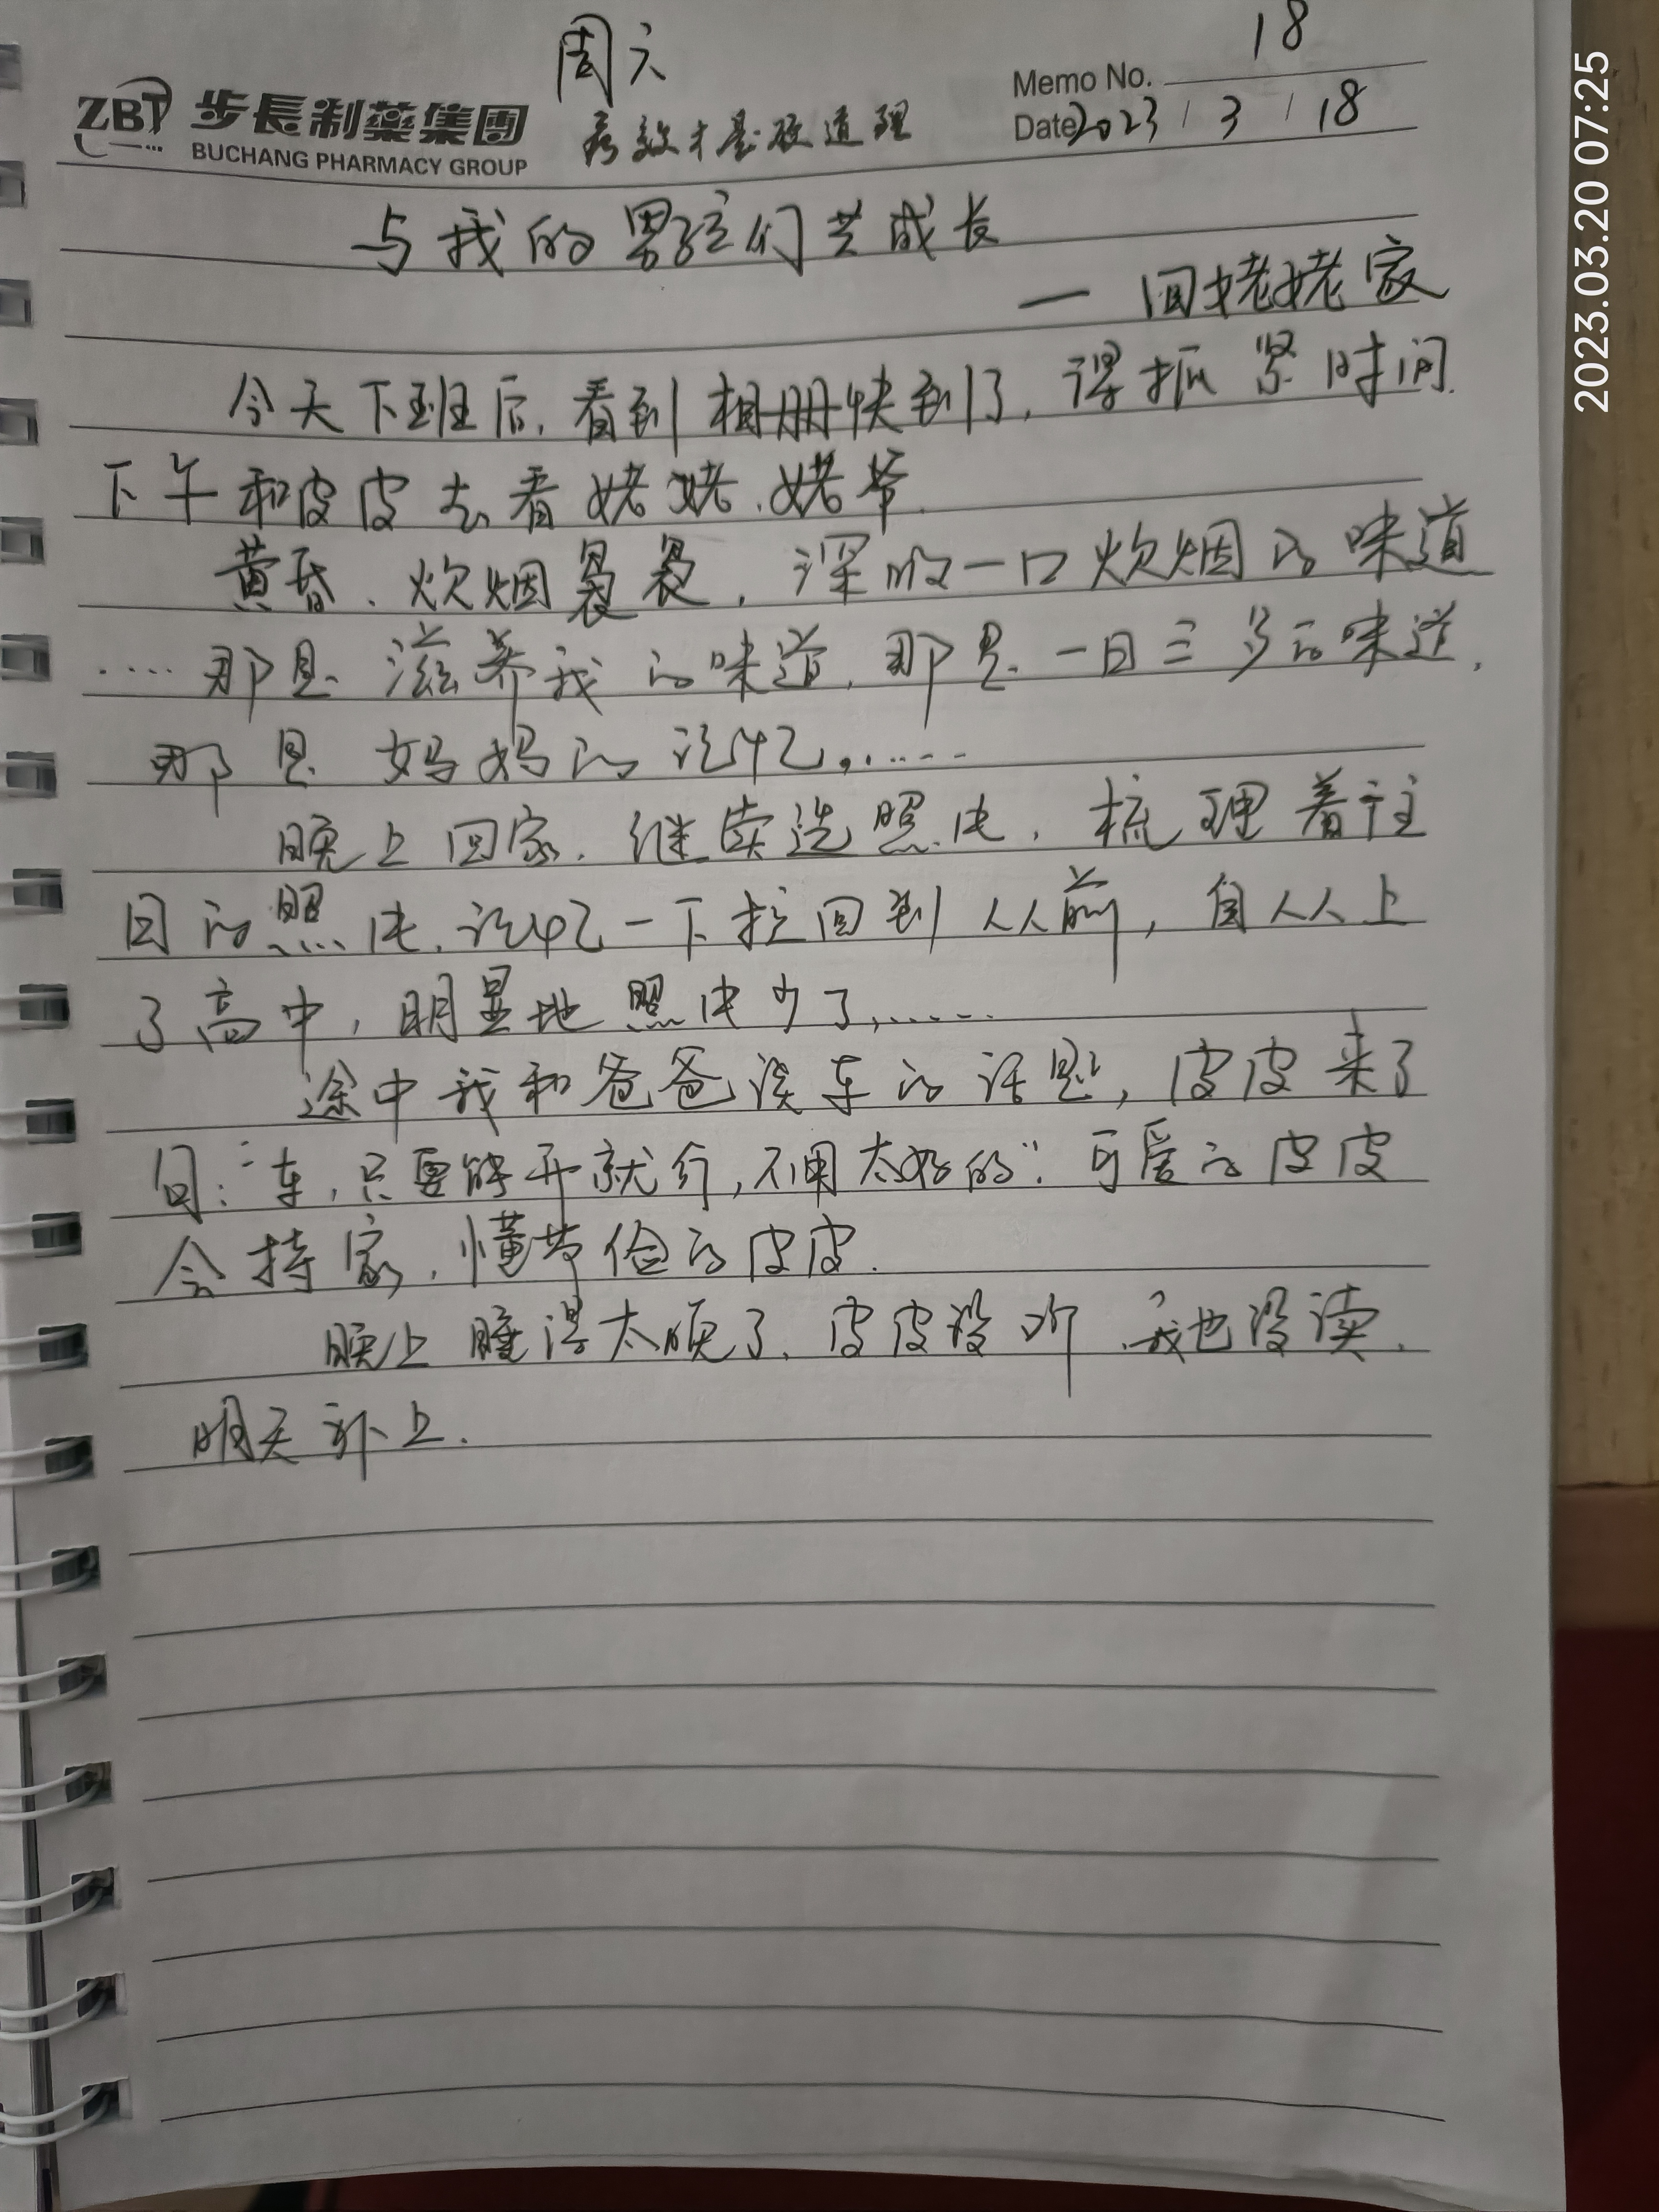 周六
18
Memo No.
ZBT 步長制藥集團
BUCHANG PHARMACY GROUP
疗效才是硬道理
Date 2023 / 3 / 18
与我的男孩们共成长
— 回姥姥家
今天下班后,看到相册快到了,得抓紧时间.
下午和皮皮去看姥姥.姥爷.
黄昏、炊烟袅袅,深吸一口炊烟的味道
……那是滋养我的味道,那是一日三歺的味道,
那是妈妈的记忆,……
晚上回家,继续选照片,梳理着往
日的照片,记忆一下拉回到从前,自从上
了高中,明显地照片少了,……
途中我和爸爸谈车的话题,皮皮来了
句:“车,只要能开就行,不用太好的”.可爱的皮皮
会持家,懂节俭的皮皮.
晚上睡得太晚了,皮皮没听,我也没读,
明天补上.
2023.03.20 07:25